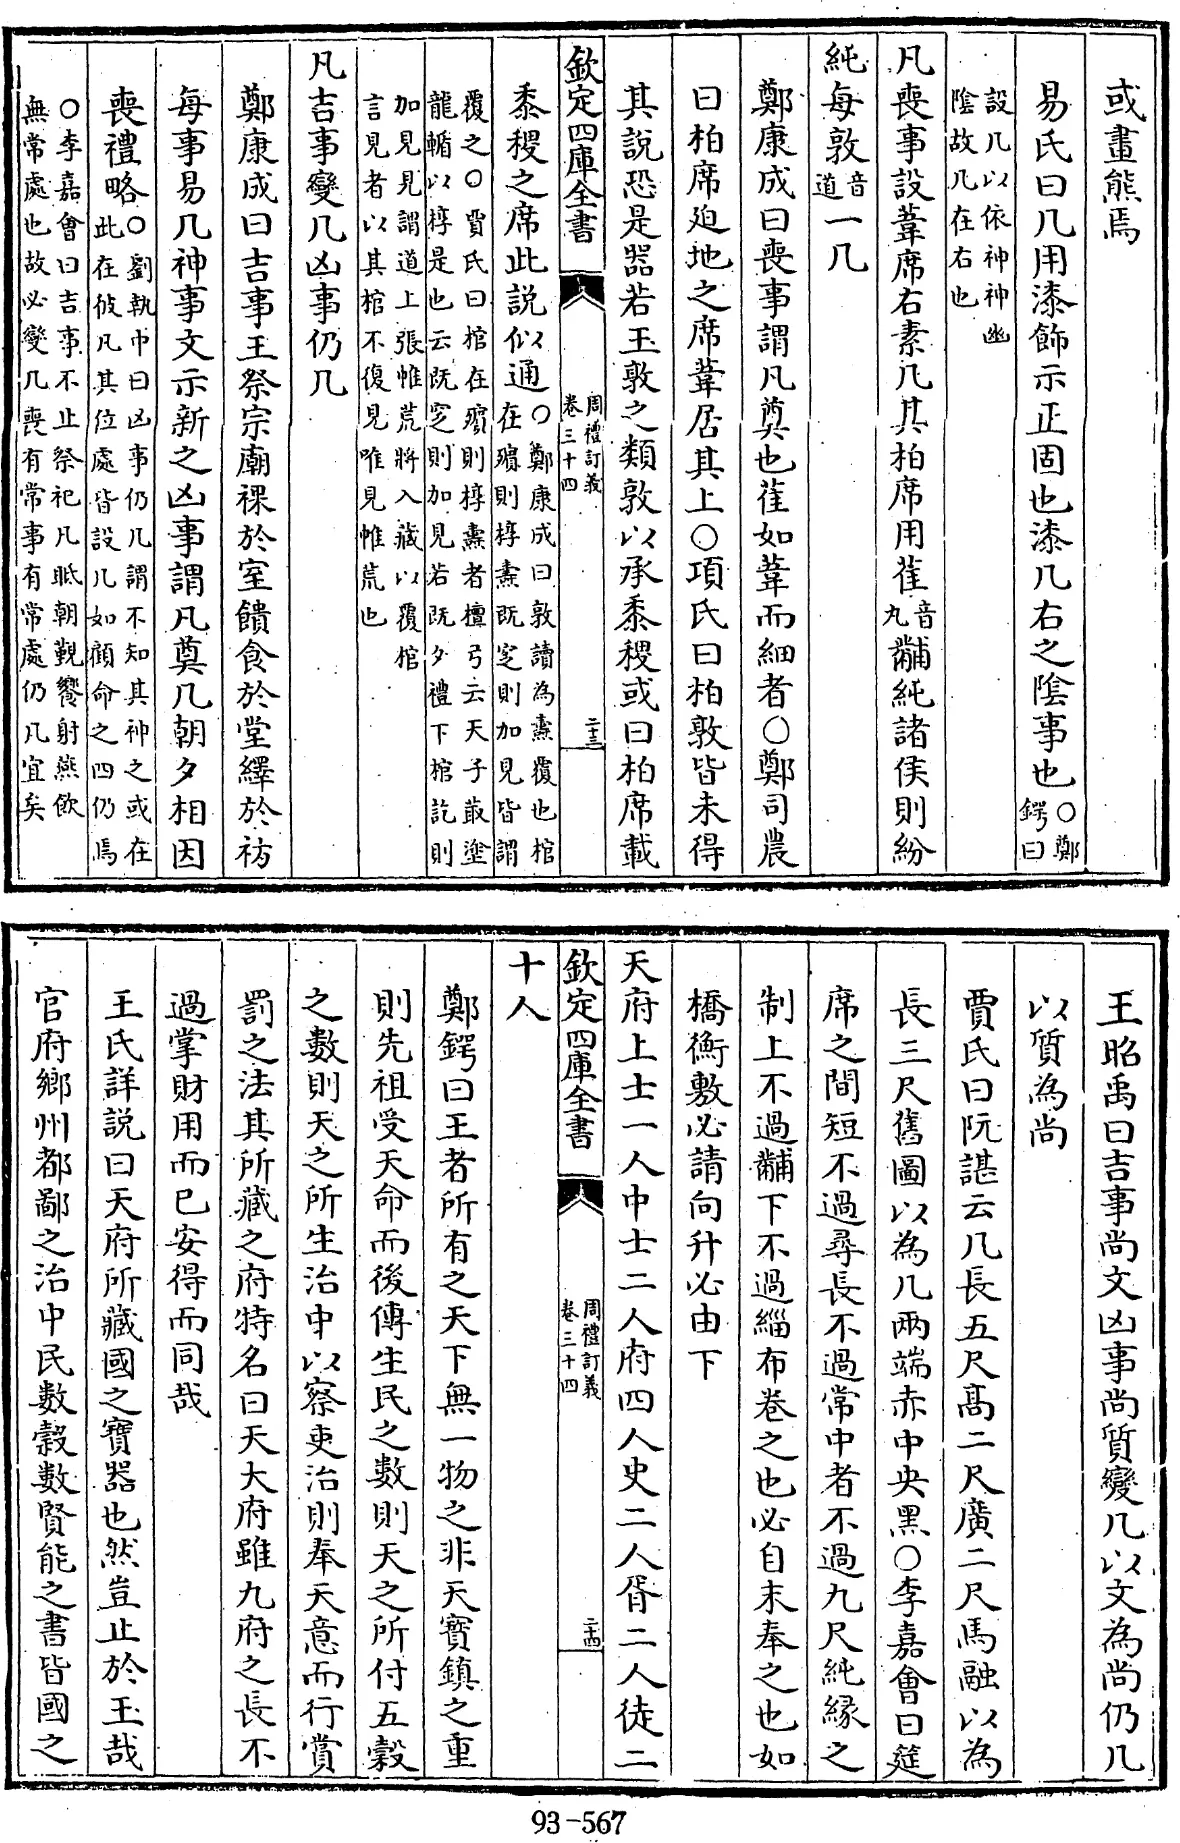 或畫熊焉
易氏曰几用漆飾示正固也漆几右之陰事也○鄭
鍔曰
設几以依神神幽
陰故几在右也
凡喪事設葦席右素几其柏席用萑音
丸黼純諸侯則紛
純每敦音
道一几
鄭康成曰喪事謂凡奠也萑如葦而細者○鄭司農
曰柏席迫地之席葦居其上○項氏曰柏敦皆未得
其說恐是器若玉敦之類敦以承黍稷或曰柏席載
欽定四庫全書
周禮訂義
卷三十四
二十三
黍稷之席此說似通○鄭康成曰敦讀為燾覆也棺
在殯則椁燾既窆則加見皆謂
覆之○賈氏曰棺在殯則椁燾者檀弓云天子菆塗
龍輴以椁是也云既窆則加見若既夕禮下棺訖則
加見見謂道上張帷荒將入藏以覆棺
言見者以其棺不復見唯見帷荒也
凡吉事變几凶事仍几
鄭康成曰吉事王祭宗廟祼於室饋食於堂繹於祊
每事易几神事文示新之凶事謂凡奠几朝夕相因
喪禮略○劉執中曰凶事仍几謂不知其神之或在
此在彼凡其位處皆設几如顧命之四仍焉
○李嘉會曰吉事不止祭祀凡眡朝覲饗射燕飲
無常處也故必變几喪有常事有常處仍几宜矣
王昭禹曰吉事尚文凶事尚質變几以文為尚仍几
以質為尚
賈氏曰阮諶云几長五尺高二尺廣二尺馬融以為
長三尺舊圖以為几兩端赤中央黑○李嘉會曰筵
席之間短不過尋長不過常中者不過九尺純緣之
制上不過黼下不過緇布卷之也必自末奉之也如
橋衡敷必請向升必由下
天府上士一人中士二人府四人史二人胥二人徒二
欽定四庫全書
周禮訂義
卷三十四
二十四
十人
鄭鍔曰王者所有之天下無一物之非天寶鎮之重
則先祖受天命而後傳生民之數則天之所付五穀
之數則天之所生治中以察吏治則奉天意而行賞
罰之法其所藏之府特名曰天大府雖九府之長不
過掌財用而已安得而同哉
王氏詳説曰天府所藏國之寶器也然豈止於玉哉
官府鄉州都鄙之治中民數穀數賢能之書皆國之
93-567